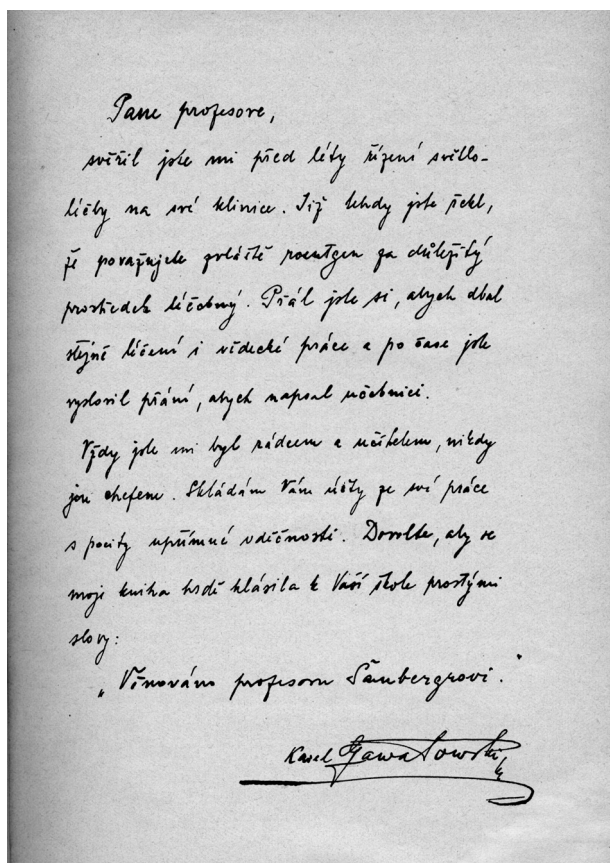 Pane profesore,
svěřil jste mi před léty řízení světlo-
léčby na své klinice. Již tehdy jste řekl,
že považujete zvláště roentgen za důležitý
prostředek léčebný. Přál jste si, abych dbal
stejně léčení i vědecké práce a po čase jste
vyslovil přání, abych napsal učebnici.
Vždy jste mi byl rádcem a učitelem, nikdy
jen chefem. Skládám Vám účty ze své práce
s pocity upřímné vděčnosti. Dovolte, aby se
moje kniha hrdě hlásila k Vaší škole prostými
slovy:
„Věnováno profesoru Šambergrovi."
Karel Gawalowski